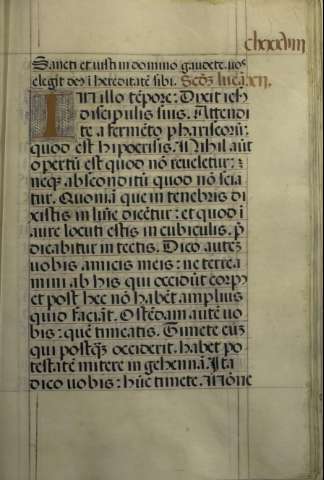 clxxxviii
Sancti et iusti in domino gaudete. vos
elegit deꝰ ī hereditatē sibi. Scḋꝫ lucā. xii.
IN illo tēpore: Dixit iesꝰ
discipulis suis. Attendi
te a fermēto phariseorū:
quod est hipocrisis. Nihil aūt
opertū est quod nō reueletur:
neqꝫ absconditū quod nō scia
tur. Quoniā que in tenebris di
xistis in lūie dicētur: et quod ī
aure locuti estis in cubiculis. p̄
dicabitur in tectis. Dico autē
uobis amicis meis: ne terrea
mini ab his qui occidūt corpꝰ
et post hec nō habēt amplius
quid faciāt. Ostēdam autē uo
bis: quē timeatis. Timete eū
qui postqꝫ occiderit. habet po
testatē mitere in gehennā. Ita
dico uobis: hūc timete. Nōne